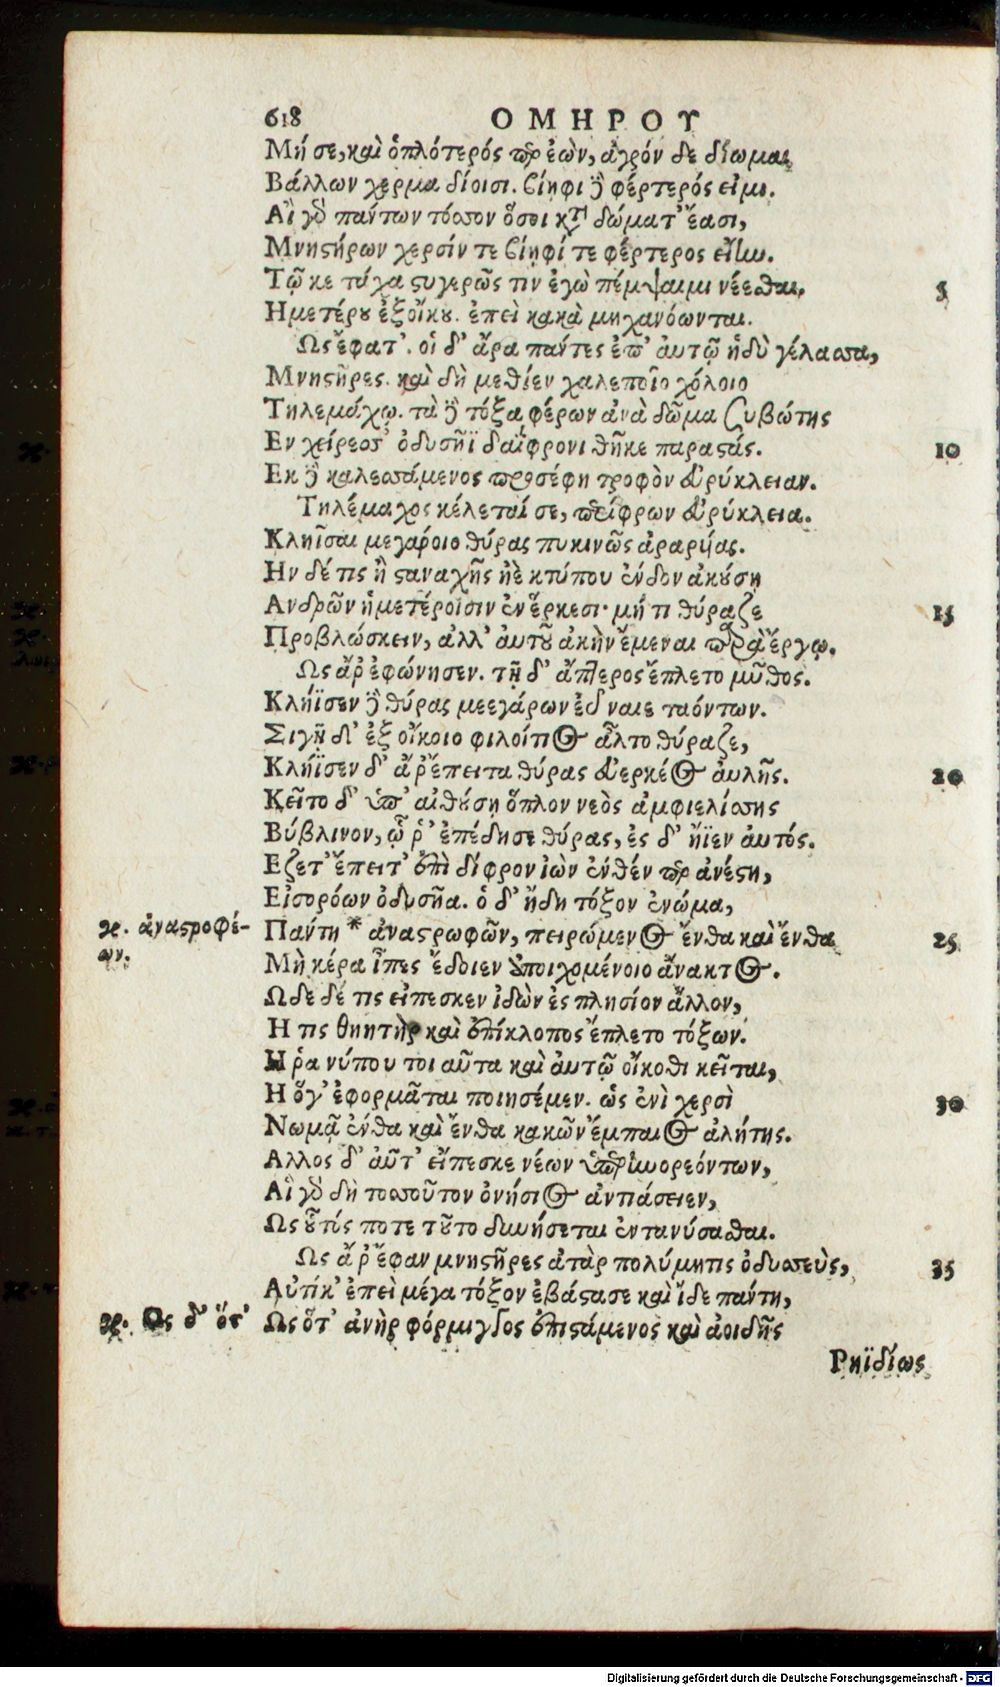 618 ΟΜΗΡΟΥ
Μή σε, καὶ ὁπλότερός περ ἐὼν, ἀγρόν δε δίωμαι,
Βάλλων χερμαδίοισι. βίηφι δὲ φέρτερός εἰμι.
Αἲ γὰρ πάντων τόσσον ὅσοι κατὰ δώματ' ἔασι,
Μνηστήρων χερσίν τε βίηφί τε φέρτερος εἴην.
Τῷ κε τάχα στυγερῶς τιν ἐγὼ πέμψαιμι νέεσθαι, 5
Ημετέρου ἐξ οἴκου. ἐπεὶ κακὰ μηχανόωνται.
Ως ἔφατ'. οἱ δ' ἄρα πάντες ἐπ' ἀυτῷ ἡδὺ γέλασσαν,
Μνηστῆρες. καὶ δὴ μεθίεν χαλεποῖο χόλοιο
Τηλεμάχῳ. τὰ δὲ τόξα φέρων ἀνὰ δῶμα συβώτης
Εν χείρεσσ' ὀδυσῆϊ δαΐφρονι θῆκε παραστάς. 10
Εκ δὲ καλεσσάμενος προσέφη τροφὸν εὐρύκλειαν.
Τηλέμαχος κέλεταί σε, περίφρων εὐρύκλεια.
Κληῖσαι μεγάροιο θύρας πυκινῶς ἀραρυίας.
Ην δέ τις ἢ στοναχῆς ἠὲ κτύπου ἔνδον ἀκούσῃ
Ανδρῶν ἡμετέροισιν ἐν ἕρκεσι· μή τι θύραζε 15
Προβλώσκειν, ἀλλ' ἀυτοῦ ἀκὴν ἔμεναι παρὰ ἔργῳ.
Ως ἄρ ἐφώνησεν. τῇ δ' ἄπτερος ἔπλετο μῦθος.
Κλήϊσεν δὲ θύρας μεγάρων εὖ ναιεταόντων.
Σιγῇ δ' ἐξ οἴκοιο φιλοίτιος ἆλτο θύραζε,
Κλήϊσεν δ' ἄρ ἔπειτα θύρας εὐερκέος ἀυλῆς. 20
Κεῖτο δ' ὑπ' αἰθούσῃ ὅπλον νεὸς ἀμφιελίσσης
Βύβλινον, ᾧ ῥ' ἐπέδησε θύρας, ἐς δ' ἤϊεν ἀυτός.
Εζετ' ἔπειτ' ἐπὶ δίφρον ἰὼν ἔνθέν περ ἀνέστη,
Εἰσορόων ὀδυσῆα. ὁ δ' ἤδη τόξον ἐνώμα,
γρ. ἀναστροφέ-
ων.
Πάντη * ἀναστρωφῶν, πειρώμενος ἔνθα καὶ ἔνθα 25
Μὴ κέρα ἶπες ἔδοιεν ἀποιχομένοιο ἄνακτος.
Ωδε δέ τις εἴπεσκεν ἰδὼν ἐς πλησίον ἄλλον,
Η τις θηητὴρ καὶ ἐπίκλοπος ἔπλετο τόξων.
Η ῥα νύπου τοι αῦτα καὶ ἀυτῷ οἴκοθι κεῖται,
Η ὅγ' ἐφορμᾶται ποιησέμεν. ὡς ἐνὶ χερσὶ 30
Νωμᾷ ἔνθα καὶ ἔνθα κακῶν ἔμπαιος ἀλήτης.
Αλλος δ' αὖτ' εἴπεσκε νέων ὑπερηνορεόντων,
Αἲ γὰρ δὴ τοσσοῦτον ὀνήσιος ἀντιάσειεν,
Ως οὗτός ποτε τοῦτο δυνήσεται ἐντανύσασθαι.
Ως ἄρ ἔφαν μνηστῆρες ἀτὰρ πολύμητις ὀδυσσεὺς, 35
Αὐτίκ' ἐπεὶ μέγα τόξον ἐβάστασε καὶ ἴδε πάντη,
γρ. Ως δ' ὅτ'
Ως ὅτ' ἀνὴρ φόρμιγγος ἐπιστάμενος καὶ ἀοιδῆς
Ρηϊδίως
Digitalisierung gefördert durch die Deutsche Forschungsgemeinschaft - DFG